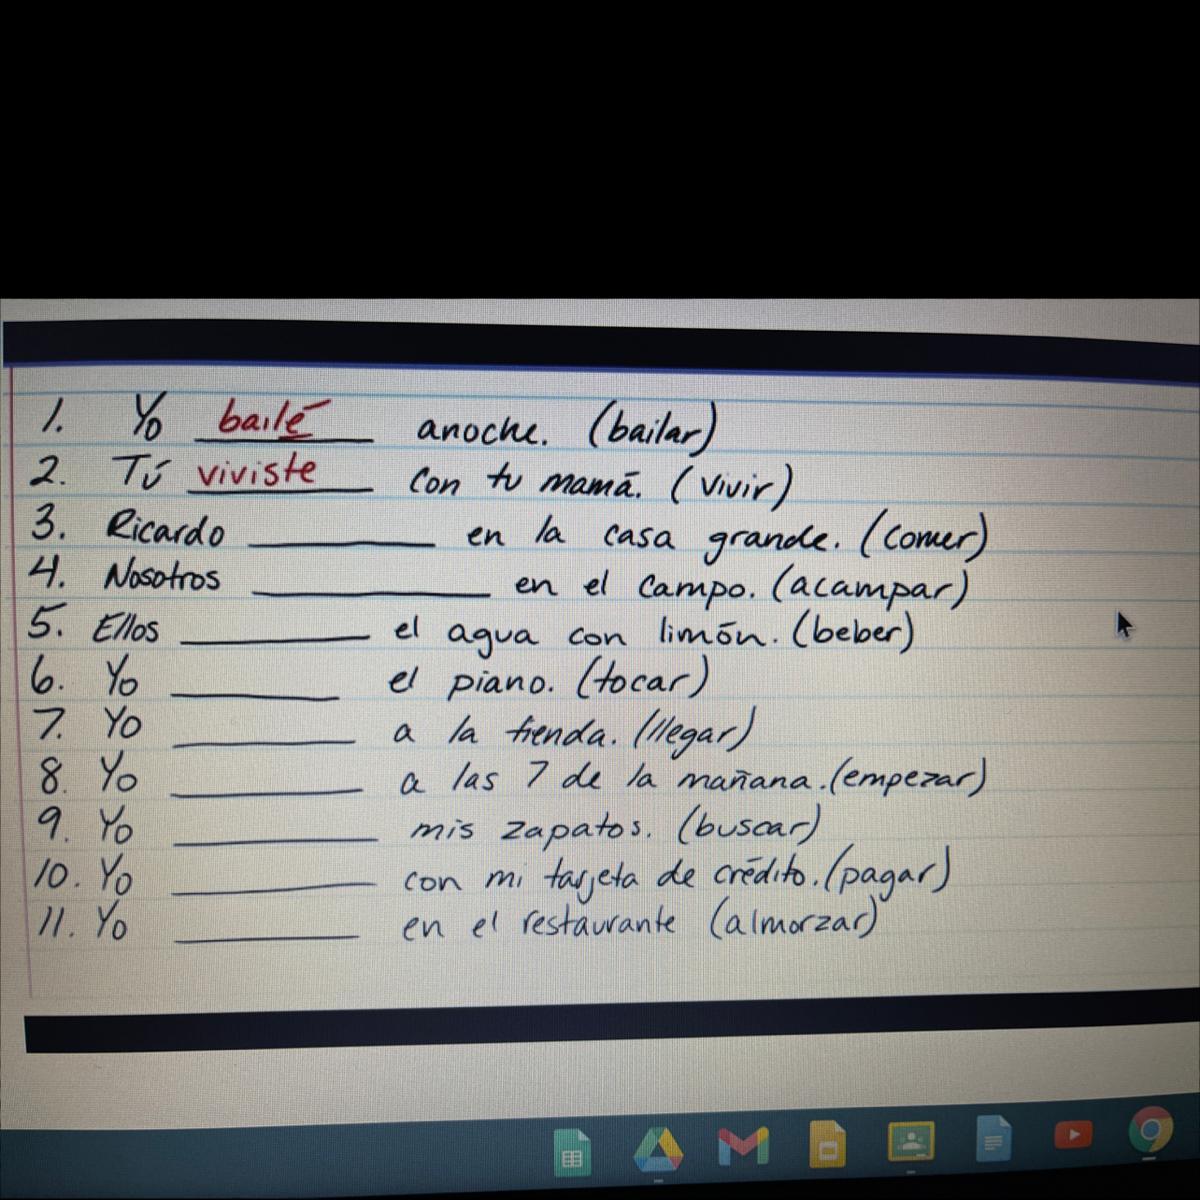 1. Yo bailé anoche. (bailar)
2. Tú viviste con tu mamá. (vivir)
3. Ricardo ________ en la casa grande. (comer)
4. Nosotros ________ en el campo. (acampar)
5. Ellos ________ el agua con limón. (beber)
6. Yo ________ el piano. (tocar)
7. Yo ________ a la tienda. (llegar)
8. Yo ________ a las 7 de la mañana. (empezar)
9. Yo ________ mis zapatos. (buscar)
10. Yo ________ con mi tarjeta de crédito. (pagar)
11. Yo ________ en el restaurante (almorzar)